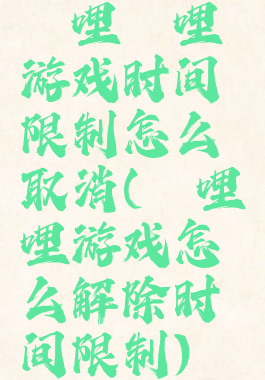 哩 哩
游戏时间
限制怎么
取消( 哩
哩游戏怎
么解除时
间限制)